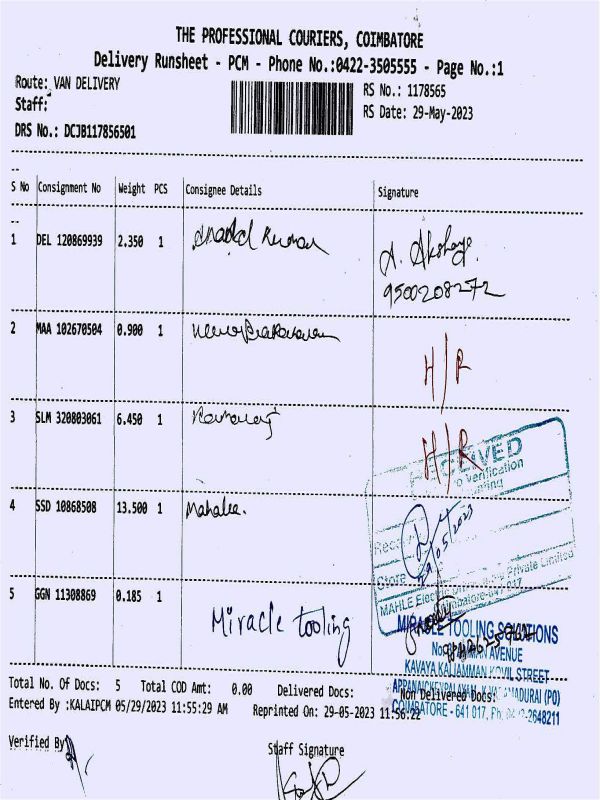 THE PROFESSIONAL COURIERS, COIMBATORE
Delivery Runsheet - PCM - Phone No.:0422-3505555 - Page No.:1
Route: VAN DELIVERY
RS No.: 1178565
Staff:
RS Date: 29-May-2023
DRS No.: DCJB117856501
S No Consignment No Weight PCS Consignee Details Signature
1 DEL 120869939 2.350 1 Kumar A. Akshaya
9500208272
2 MAA 102670504 0.900 1 H/R
3 SLM 320803061 6.450 1 H/R
RECEIVED
verification
4 SSD 10868508 13.500 1 Mahale.
29/05/2023
Store
MAHLE Private Limited
Coimbatore-641 017
5 GGN 11308869 0.185 1 Miracle tooling
MIRACLE TOOLING SOLUTIONS
AVENUE
KAVAYA KALIAMMAN KOVIL STREET
Total No. Of Docs: 5 Total COD Amt: 0.00 Delivered Docs: Non Delivered Docs:
COIMBATORE - 641 017, Ph: 0422-2648211
Entered By :KALAIPCM 05/29/2023 11:55:29 AM Reprinted On: 29-05-2023 11:56:22
Verified By
Staff Signature